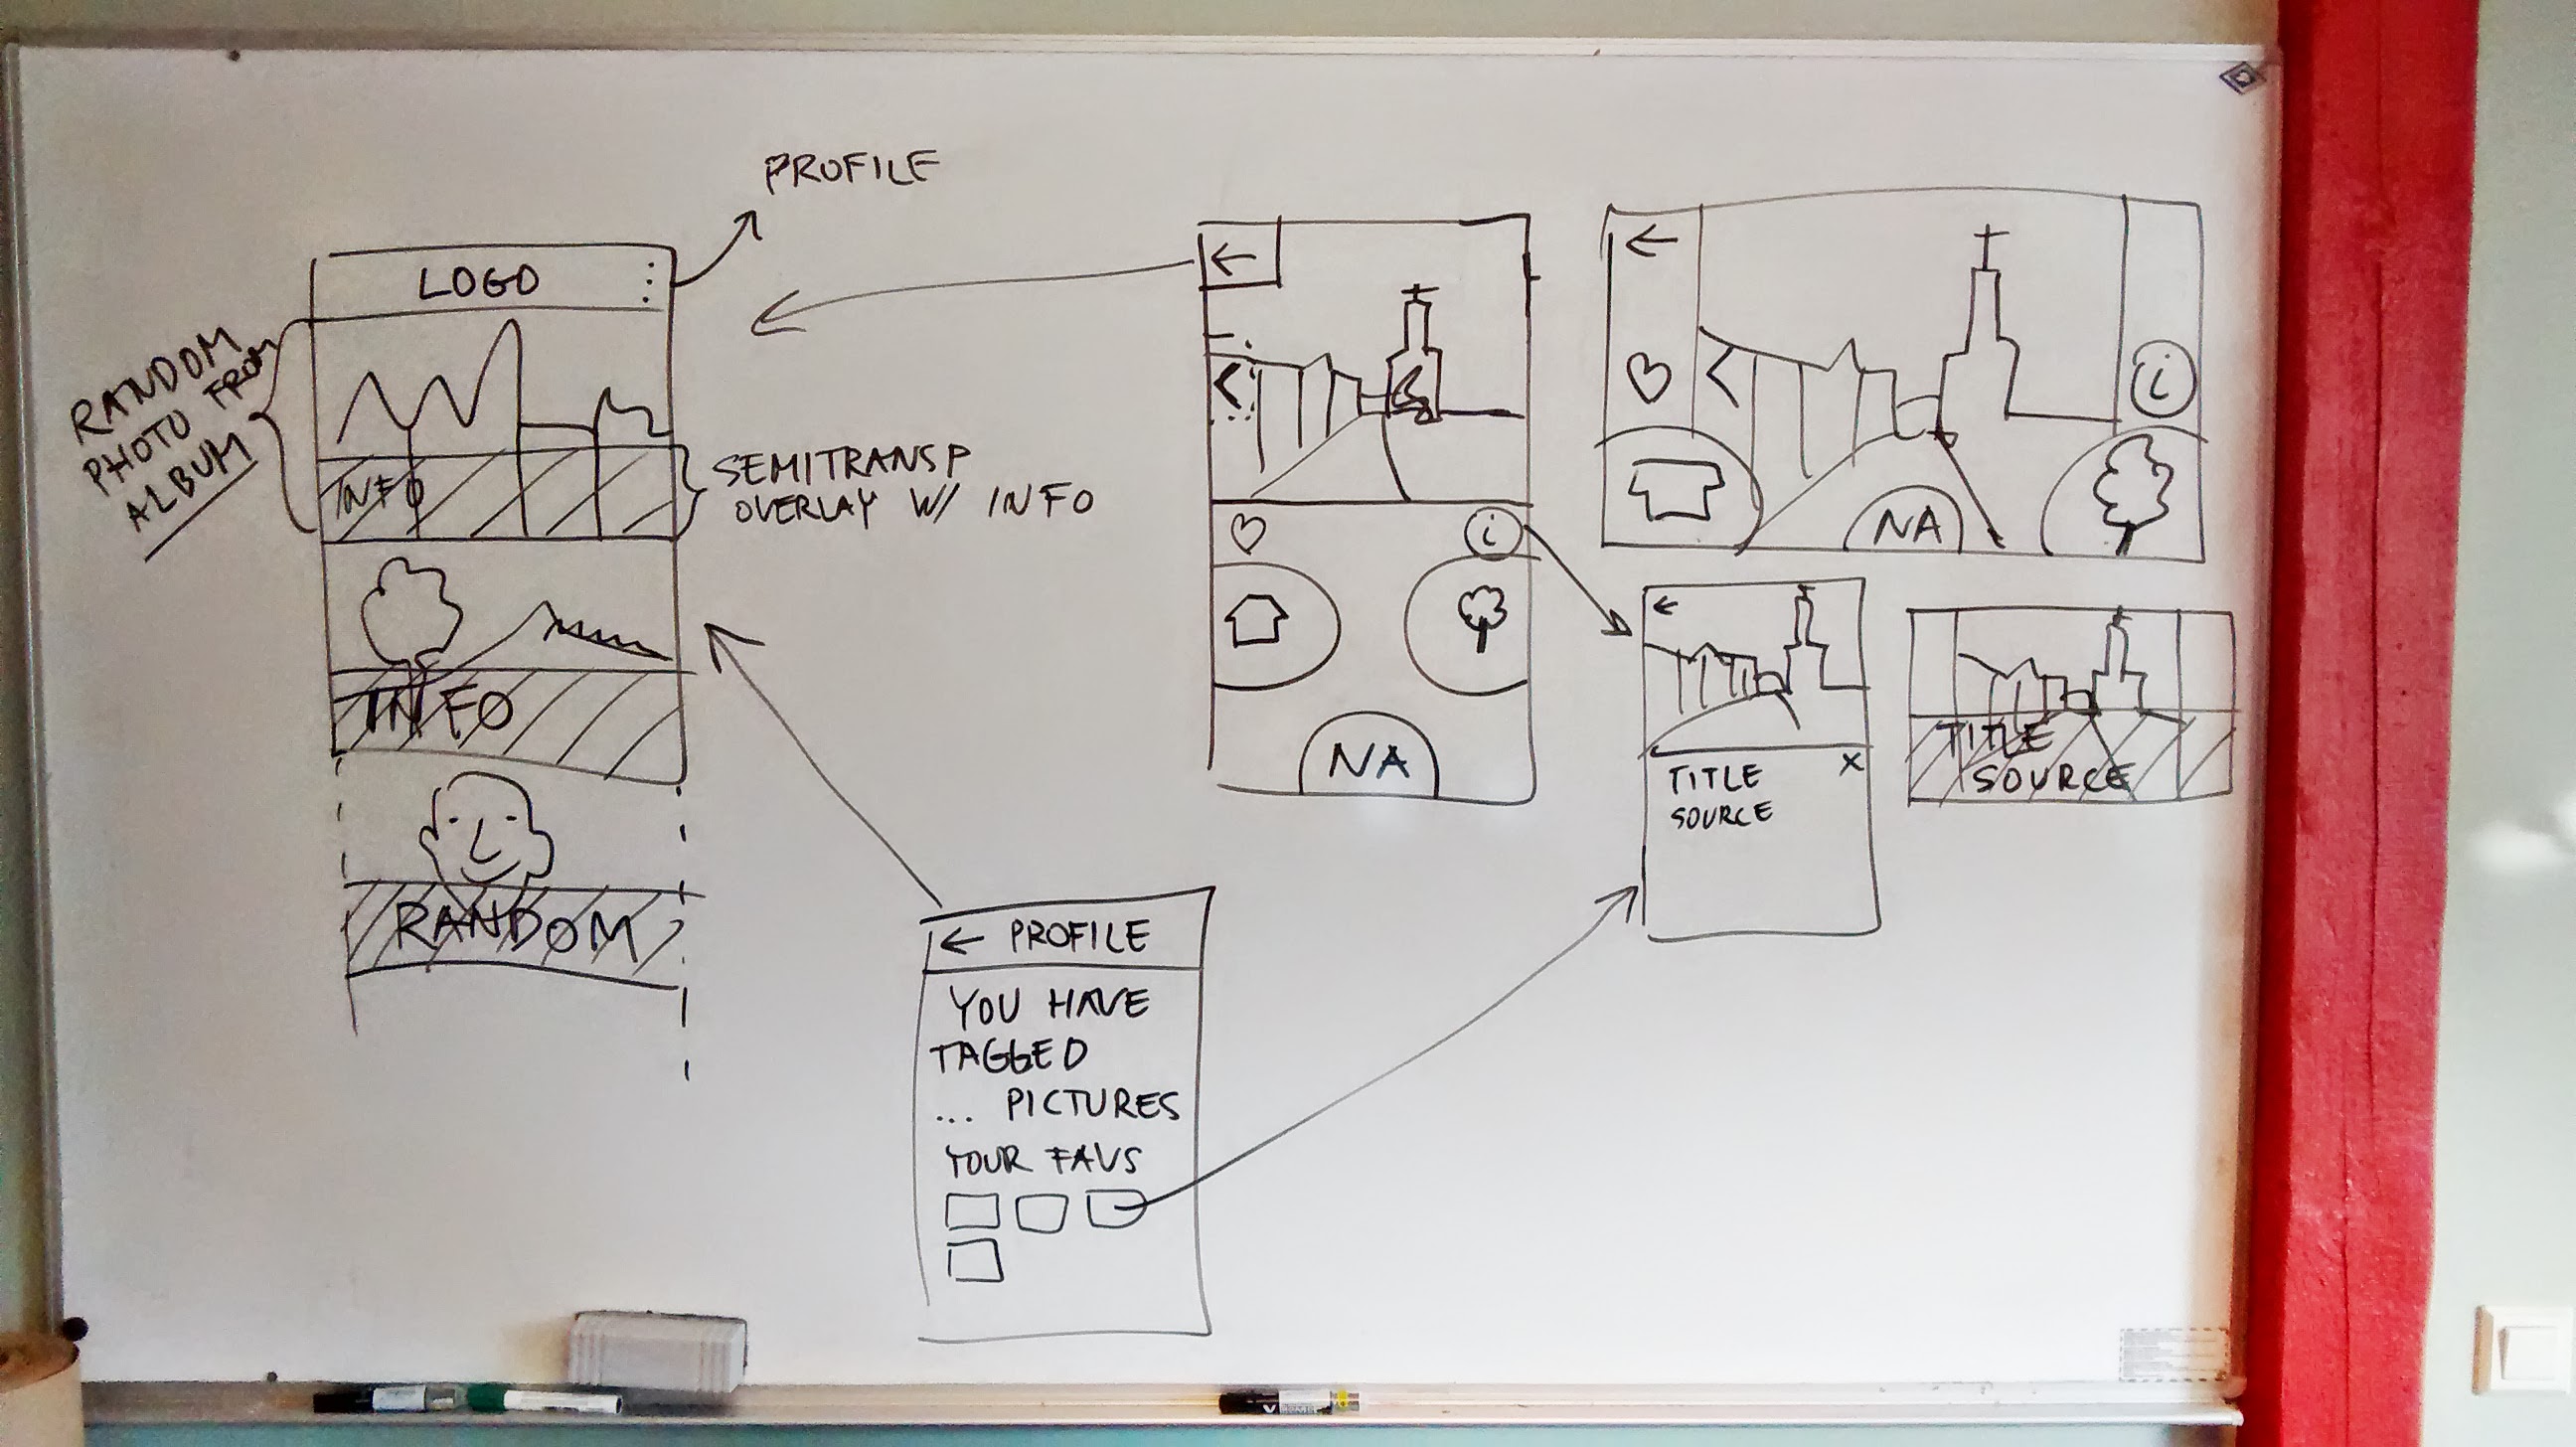 PROFILE
LOGO
RANDOM
PHOTO FROM
ALBUM
INFO
SEMITRANSP
OVERLAY W/ INFO
INFO
RANDOM
← PROFILE
YOU HAVE
TAGGED
... PICTURES
YOUR FAVS
←
i
NA
←
i
NA
←
TITLE X
SOURCE
TITLE
SOURCE